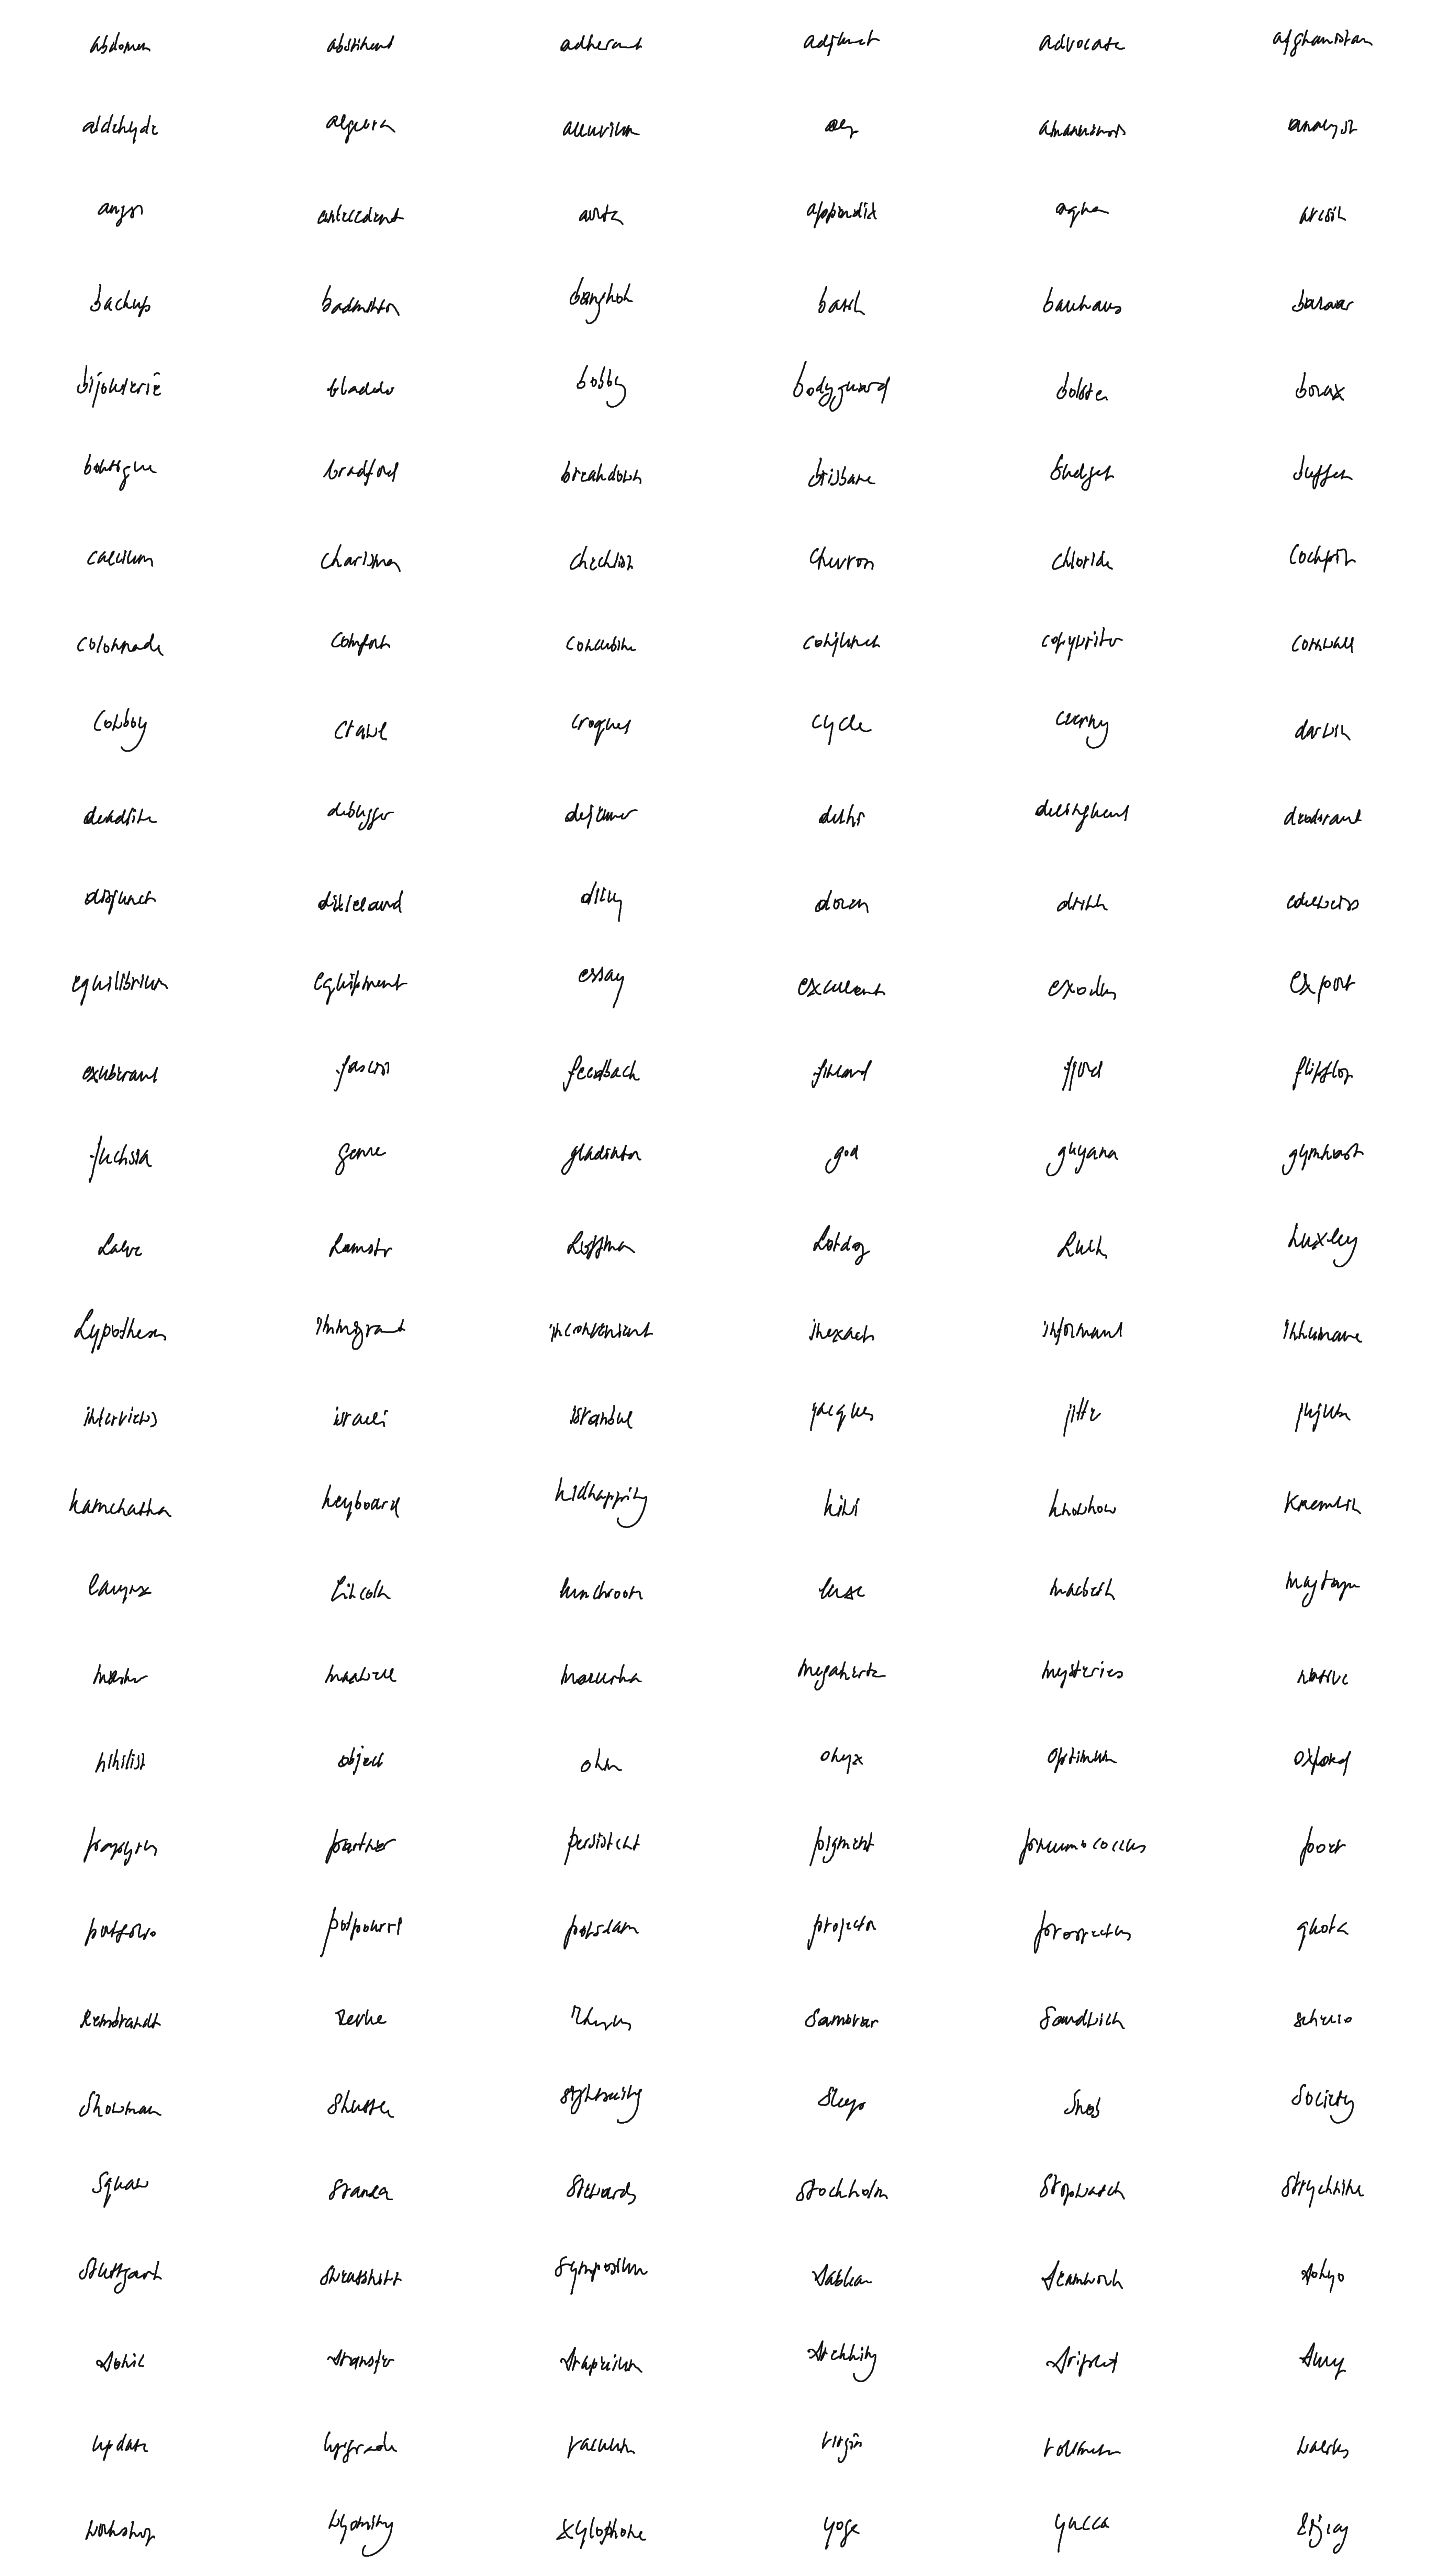 abdomen abstinent adherent adjunct advocate afghanistan
aldehyde algebra alluvium amanuensis analyst
angst antecedent aorta appendix aqua
backup badminton bangkok basil bauhaus bazaar
bijouterie bladder bobby bodyguard bolster borax
boutique bradford breakdown brisbane budget buffet
calcium charisma checklist chevron chloride cockpit
colonnade comfort concubine conjunct copywriter cornwall
cowboy crawl croquet cycle czerny darwin
deadline debugger dejeuner delhi delinquent deodorant
disjunct dixieland dizzy dozen drink edelweiss
equilibrium equipment essay excellent exodus export
exuberant fascist feedback finland fjord flipflop
fuchsia genre gladiator god guyana gymnast
halve hamster hoffman hotdog hulk huxley
hypotheses immigrant inconvenient inexact informant inhumane
interviews israeli istanbul jacques jitter jujitsu
kamchatka keyboard kidnapping kiwi knowhow kremlin
larynx lincoln lunchroom luxe macbeth
master maxwell mazurka megahertz mysteries native
nihilist object ohm onyx optimum oxford
papyrus panther persistent pigment pneumococcus poet
portfolio potpourri potsdam projector prospectus quota
rembrandt revue rhesus samovar sandwich scherzo
showman shuttle sightseeing sleep snob society
squaw stanza stewards stockholm stopwatch strychnine
stuttgart sweatshirt symposium table teamwork tokyo
tonic transfer trapezium trekking triplet
update upgrade vacuum virgin volkmann
workshop wyoming xylophone yoga yucca